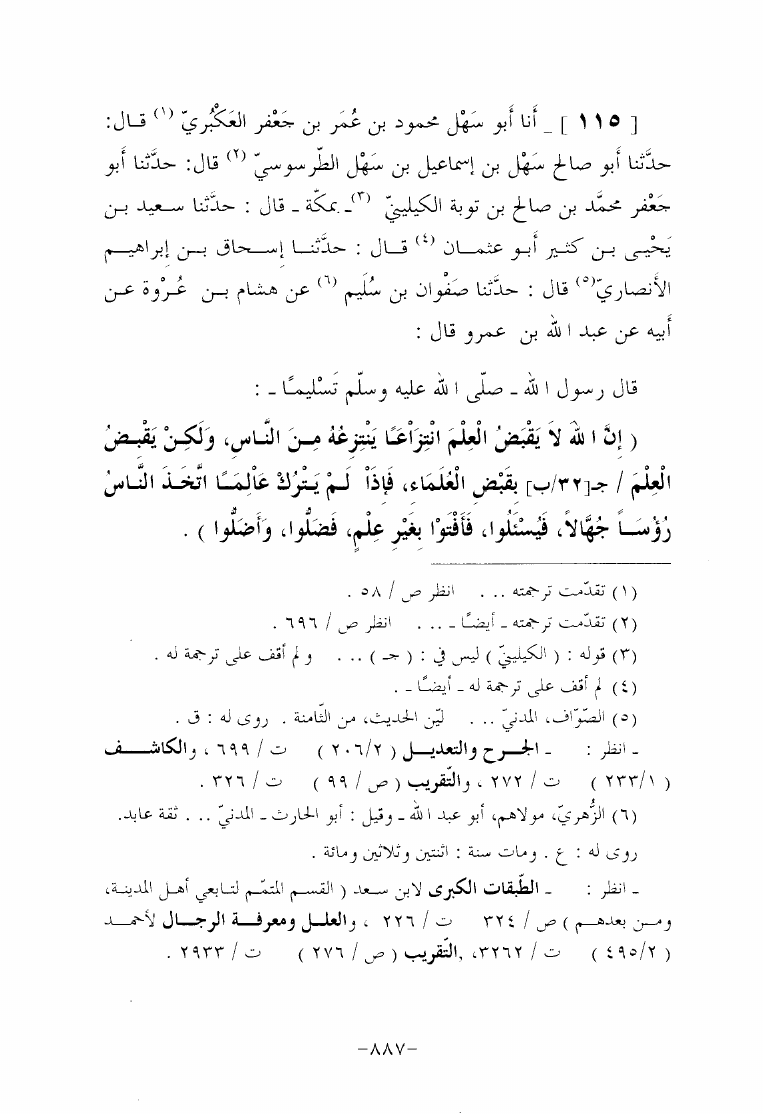 [ ١١٥ ] _ أنا أبو سَهْل محمود بن عُمَر بن جَعْفر العَكْبُريّ (١) قـال:
حدَّثنا أبو صالح سَهْل بن إسماعيل بن سَهْل الطّرسوسيّ (٢) قال: حدَّثنا أبو
جَعْفر محمَّد بن صالح بن توبة الكيلينيّ (٣)ـ بمكّة ـ قال : حدَّثنا سعيد بـن
يَحْيـى بـن كثير أبـو عثمـان (٤) قـال : حدَّثنـا إسـحاق بـن إبراهيـم
الأنصاريّ(٥) قال : حدَّثنا صَفْوان بن سُلَيم (٦) عن هشام بـن عُـرْوة عـن
أبيه عن عبد ا لله بن عمرو قال :
قال رسول ا لله ـ صلّى ا لله عليه وسلّم تَسْليمًـا ـ :
( إنَّ ا لله لاَ يَقْبَضُ الْعِلْمَ انْتِزَاْعَـًا يَنْتِزِعُهُ مِـنَ النَّـاسِ، وَلَكِـنْ يَقْبِـضُ
الْعِلْمَ / جـ[٣٢/ب] بِقَبْضِ الْعُلَمَاء، فَإِذَاْ لَـمْ يَـتْرُكْ عَاْلِمَـًا اتَّخَـذَ النَّـاسُ
رُؤْسَـاً جُهَّالاً، فَيُسْئَلُوا، فَأَفْتَوْا بِغَيْرِ عِلْمٍ، فَضَلُّوا، وَأَضَلُّوا ) .
(١) تقدّمت ترجمته ... انظر ص / ٥٨ .
(٢) تقدّمت ترجمته ـ أيضًـا ـ ... انظر ص / ٦٩٦ .
(٣) قوله : ( الكيلينيّ ) ليس في : ( جـ ) ... و لم أقف على ترجمة له .
(٤) لم أقف على ترجمة له ـ أيضًـا ـ .
(٥) الصّوّاف، المدنيّ ... ليّن الحديث، من الثّامنة . روى له : ق .
ـ انظر : ـ الجـرح والتعديـل ( ٢٠٦/٢ ) ت / ٦٩٩ ، والكاشـف
( ٢٣٣/١ ) ت / ٢٧٢ ، والتّقريب ( ص / ٩٩ ) ت / ٣٢٦ .
(٦) الزُّهريّ، مولاهم، أبو عبد ا لله ـ وقيل : أبو الحارث ـ المدنيّ ... ثقة عابد.
روى له : ع . ومات سنة : اثنتين وثلاثين ومائة .
ـ انظر : ـ الطّبقات الكبرى لابن سـعد ( القسـم المتمّـم لتـابعي أهـل المدينـة،
ومـن بعدهـم ) ص / ٣٢٤ ت / ٢٢٦ ، والعلـل ومعرفـة الرجـال لأحمـد
( ٤٩٥/٢ ) ت / ٣٢٦٢، ,التّقريب ( ص / ٢٧٦ ) ت / ٢٩٣٣ .
-٨٨٧-